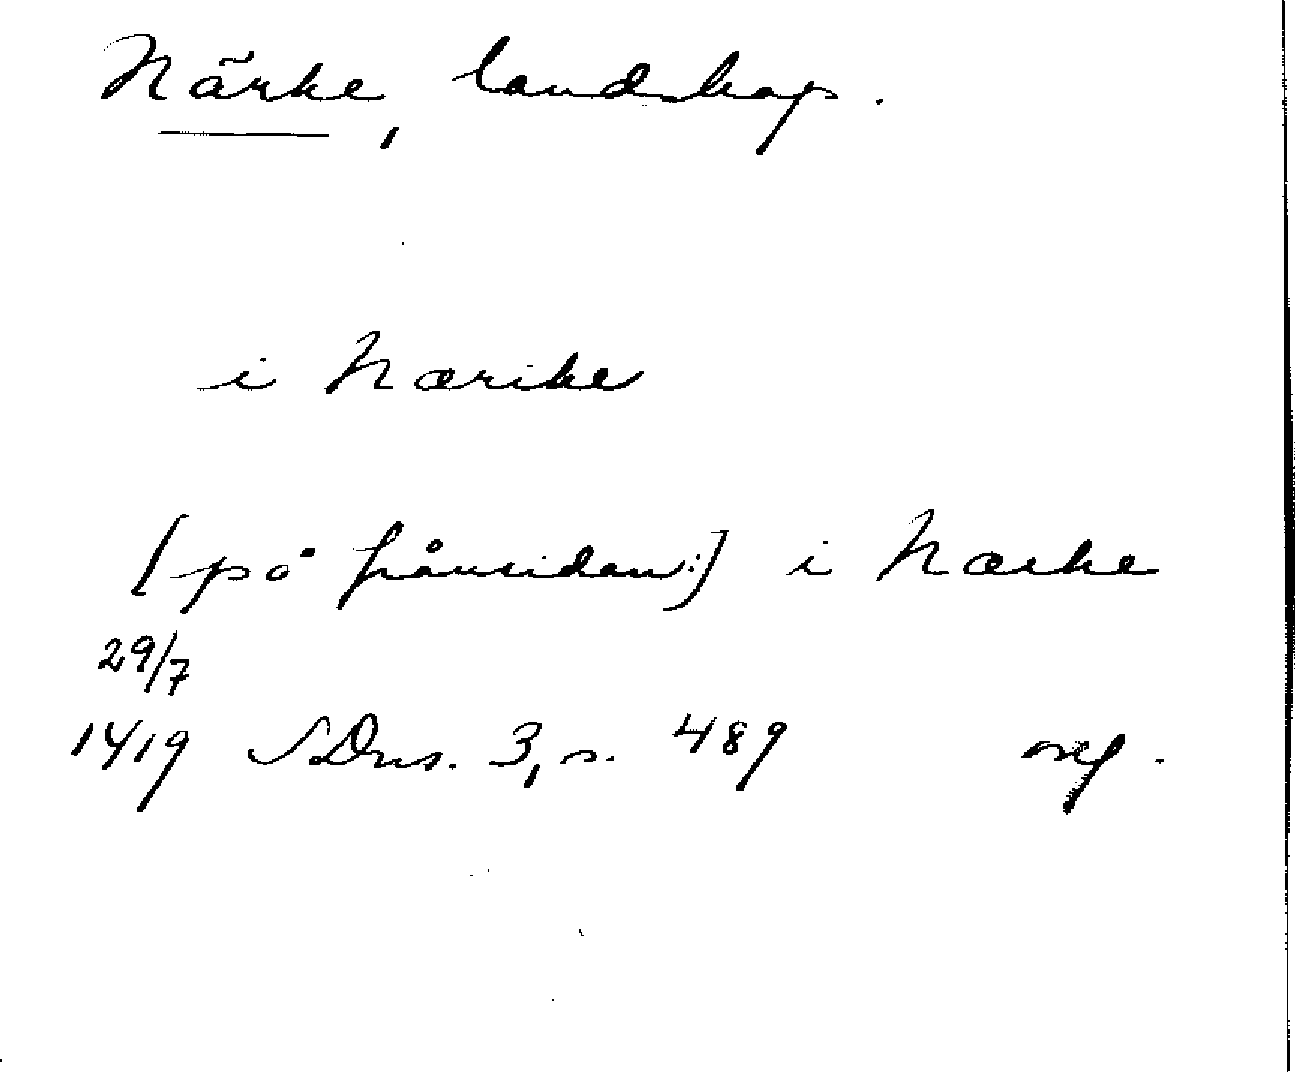 Närke, landskap.
i Nærike
[på frånsidan:] i Nærke
29/7
1419 SDns. 3, s. 489 orig.